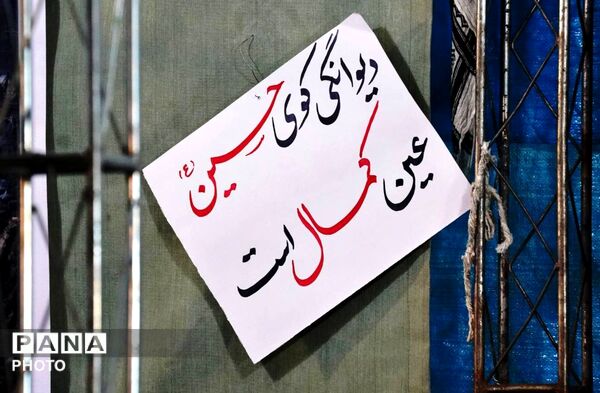 دیوانگی کوی حسین (ع)
عین کمال است
PANA
PHOTO